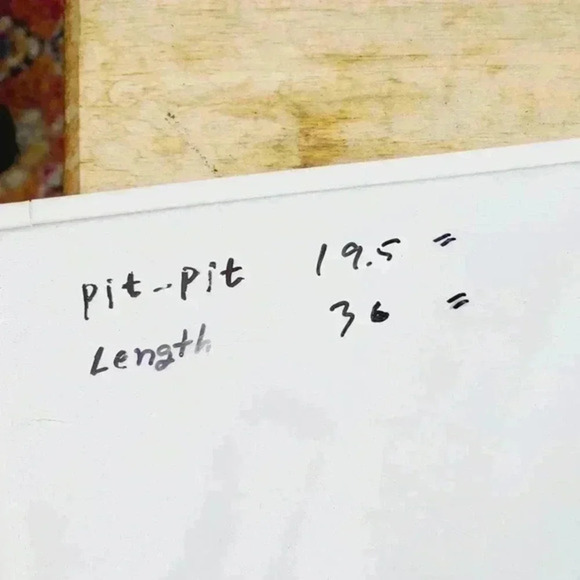 Pit-Pit 19.5 "
Length 36 "